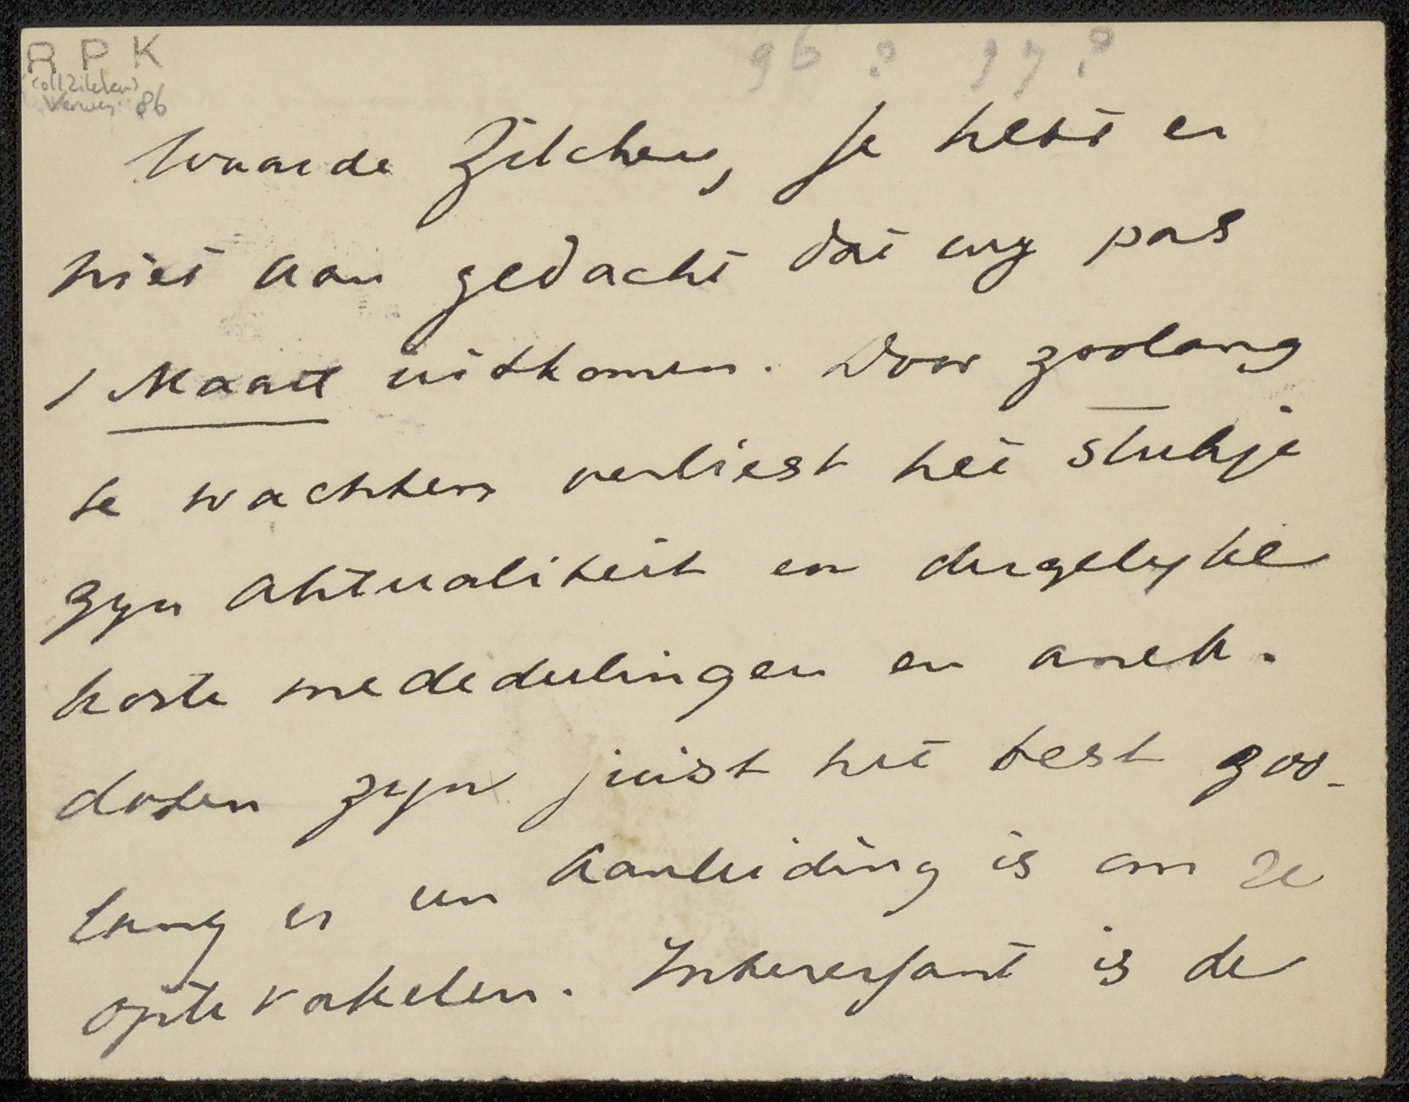 RPK
coll Zilcken
Verwey 86
96? 97?
Waarde Zilcken, Je hebt er
niet aan gedacht dat wy pas
1 Maart uitkomen. Door zoolang
te wachten verliest het stukje
zyn aktualiteit en dergelyke
korte mededeelingen en anek-
doten zyn juist het best zoo-
lang er een aanleiding is om ze
opte rakelen. Interessant is de